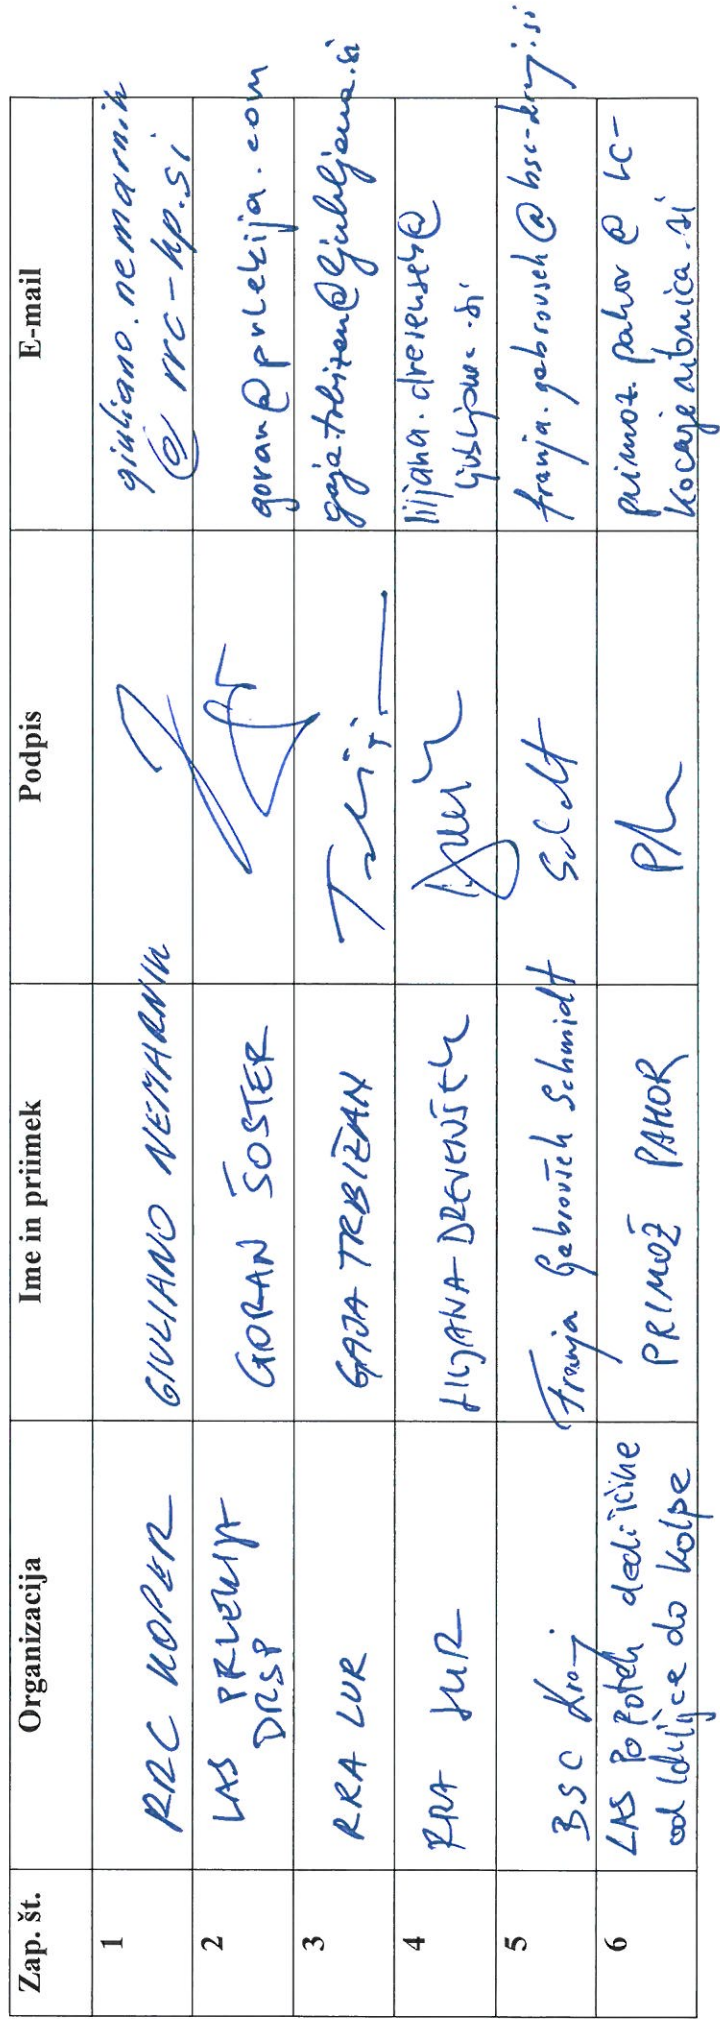 Zap. št. Organizacija Ime in priimek Podpis E-mail
1 RRC KOPER GIULIANO NEMARNIK giuliano.nemarnik
@rrc-kp.si
2 LAS PRLEKIJA GORAN ŠOSTER goran@prlekija.com
DRSP
3 RRA LUR GAJA TRBIŽAN gaja.trbizan@ljubljana.si
4 RRA LUR LILJANA DREVENŠEK liljana.drevensek@
ljubljana.si
5 BSC Kranj Franja Gabrovšek Schmidt franja.gabrovsek@bsc-kranj.si
6 LAS Po poteh dediščine PRIMOŽ PAHOR primoz.pahor@rc-
od Idrijce do Kolpe kocevjeribnica.si